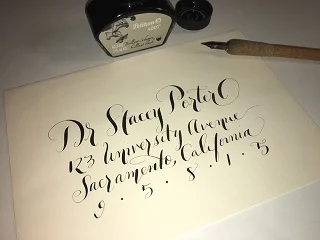 Pelikan
Dr Stacey Porter
123 University Avenue
Sacramento, California
9 · 5 · 8 · 1 · 5